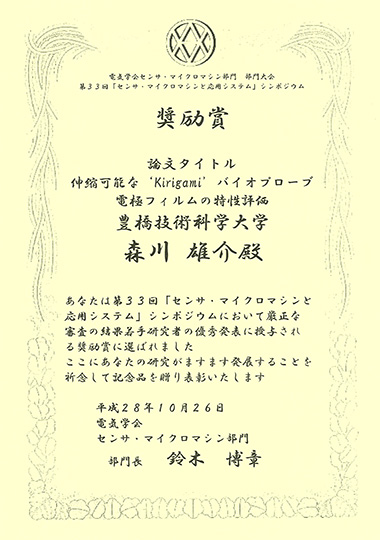 電気学会センサ・マイクロマシン部門 部門大会
第33回「センサ・マイクロマシンと応用システム」シンポジウム
奨励賞
論文タイトル
伸縮可能な 'Kirigami' バイオプローブ
電極フィルムの特性評価
豊橋技術科学大学
森川 雄介殿
あなたは第33回「センサ・マイクロマシンと
応用システム」シンポジウムにおいて厳正な
審査の結果若手研究者の優秀発表に授与され
る奨励賞に選ばれました
ここにあなたの研究がますます発展することを
祈念して記念品を贈り表彰いたします
平成28年10月26日
電気学会
センサ・マイクロマシン部門
部門長 鈴木 博章